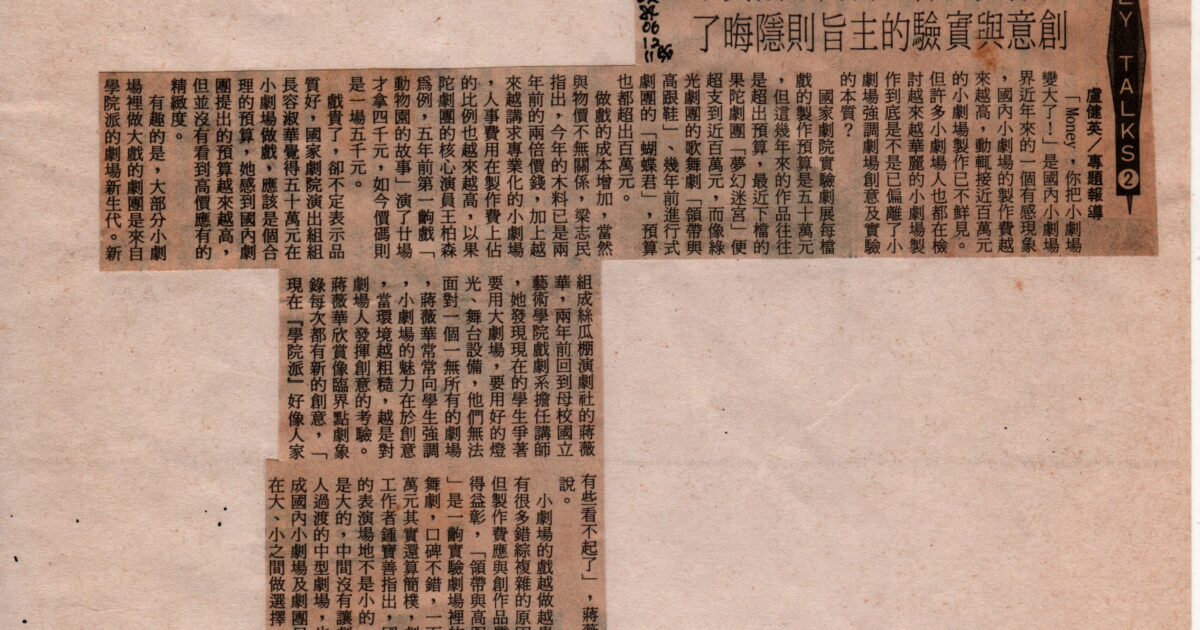 EY TALKS ❷
創意與實驗的主旨則隱晦了
06
12
盧健英/專題報導
「Money,你把小劇場
變大了!」是國內小劇場
界近年來的一個有感現象
,國內小劇場的製作費越
來越高,動輒接近百萬元
的小劇場製作已不鮮見。
但許多小劇場人也都在檢
討越來越華麗的小劇場製
作到底是不是已偏離了小
劇場強調劇場創意及實驗
的本質?
國家劇院實驗劇展每檔
戲的製作預算是五十萬元
,但這幾年來的作品往往
是超出預算,最近下檔的
果陀劇團「夢幻迷宮」便
超支到近百萬元,而像綠
光劇團的歌舞劇「領帶與
高跟鞋」、幾年前進行式
劇團的「蝴蝶君」,預算
也都超出百萬元。
做戲的成本增加,當然
與物價不無關係,梁志民
指出,今年的木料已是兩
年前的兩倍價錢,加上越
來越講求專業化的小劇場
,人事費用在製作費上佔
的比例也越來越高,以果
陀劇團的核心演員王柏森
爲例,五年前第一齣戲「
動物園的故事」演了廿場
才拿四千元,如今價碼則
是一場五千元。
戲貴了,卻不定表示品
質好,國家劇院演出組組
長容淑華覺得五十萬元在
小劇場做戲,應該是個合
理的預算,她感到國內劇
團提出的預算越來越高,
但並沒有看到高價應有的
精緻度。
有趣的是,大部分小劇
場裡做大戲的劇團是來自
學院派的劇場新生代。新
組成絲瓜棚演劇社的蔣薇
華,兩年前回到母校國立
藝術學院戲劇系擔任講師
,她發現現在的學生爭著
要用大劇場,要用好的燈
光、舞台設備,他們無法
面對一個一無所有的劇場
,蔣薇華常常向學生強調
,小劇場的魅力在於創意
,當環境越粗糙,越是對
劇場人發揮創意的考驗。
蔣薇華欣賞像臨界點劇象
錄每次都有新的創意,「
現在『學院派』好像人家
有些看不起了」,蔣薇
說。
小劇場的戲越做越貴
有很多錯綜複雜的原因
但製作費應與創作品質
得益彰,「領帶與高跟
」是一齣實驗劇場裡的
舞劇,口碑不錯,一百
萬元其實還算簡樸,劇
工作者鍾寶善指出,國
的表演場地不是小的
是大的,中間沒有讓劇
人過渡的中型劇場,也
成國內小劇場及劇團
在大、小之間做選擇